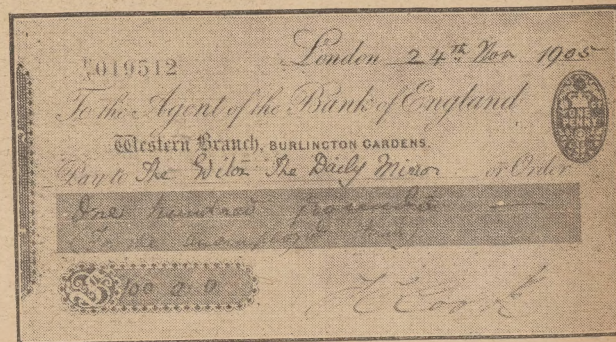 London 24th Nov 1905
019512
To the Agent of the Bank of England
Western Branch, BURLINGTON GARDENS.
Pay to The Editor The Daily Mirror or Order
One hundred pounds
(For the Unemployed Fund)
£ 100 0 0